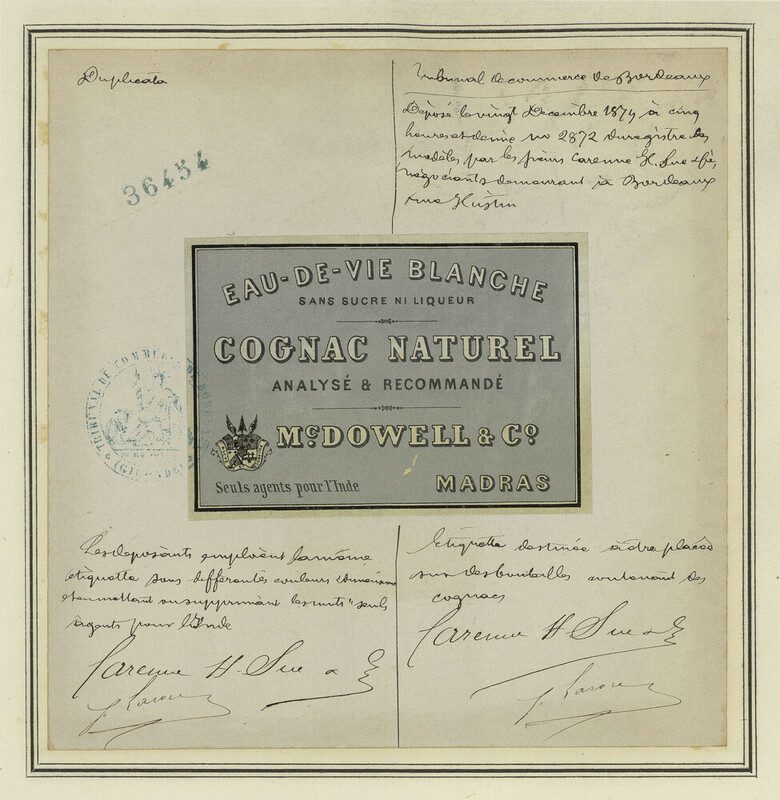 Duplicata
36454
Tribunal de commerce de Bordeaux
Déposé le vingt Décembre 1874 à cinq
heures et demie no 2872 du registre des
modèles par les frères Carenne H. Sue & fr,
négociants demeurant à Bordeaux
rue Hustin
EAU-DE-VIE BLANCHE
SANS SUCRE NI LIQUEUR
COGNAC NATUREL
ANALYSÉ & RECOMMANDÉ
McDOWELL & Co
Seuls agents pour l'Inde
MADRAS
TRIBUNAL DE COMMERCE DE BORDEAUX
(GIRONDE)
Les déposants emploient la même
étiquette sous différentes couleurs
et en mettant ou supprimant les mots "seuls
agents pour l'Inde
Carenne H. Sue &
Etiquette destinée à être placée
sur des bouteilles contenant des
cognacs
Carenne H. Sue &